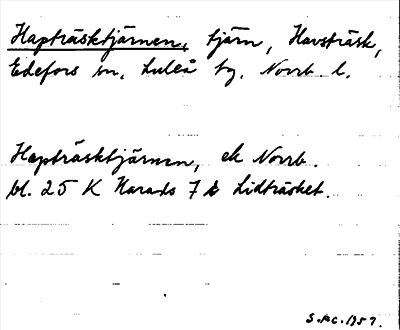 Hapträsktjärnen, tjärn, Havsträsk,
Edefors sn, Luleå tg, Norrb l.
Hapträsktjärnen, ek Norrb.
bl. 25 K Harads 7 b Lidträsket.
S.AC.1957.